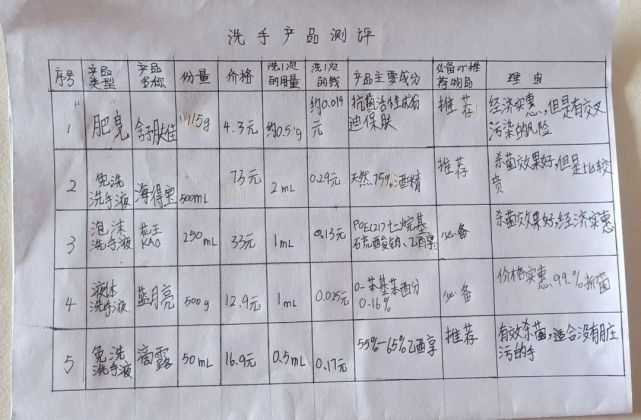 洗手产品测评
序号 产品类型 产品名称 份量 价格 洗1次的用量 洗1次的钱 产品主要成分 必备or推荐物品 理由
1 肥皂 舒肤佳 115g 4.3元 约0.5g 约0.019元 抗菌活性成份迪保肤 推荐 经济实惠,但是有交叉污染的风险
2 免洗洗手液 海得宝 500mL 73元 2mL 0.29元 天然,75%酒精 推荐 杀菌效果好,但是比较贵
3 泡沫洗手液 花王KAO 250mL 33元 1mL 0.13元 必备 杀菌效果好,经济实惠
4 液体洗手液 蓝月亮 500g 12.9元 1mL 0.025元 0.16% 必备 价格实惠、99.%抑菌
5 免洗洗手液 滴露 50mL 16.9元 0.5mL 0.17元 55%-65%乙醇 推荐 有效杀菌,适合没有污的手